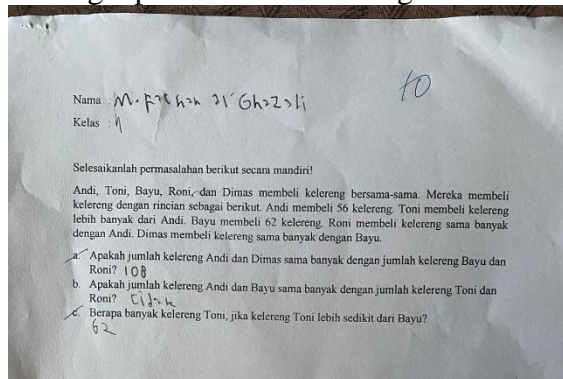 Nama : M. Farhan al Ghazali
70
Kelas : 4
Selesaikanlah permasalahan berikut secara mandiri!
Andi, Toni, Bayu, Roni, dan Dimas membeli kelereng bersama-sama. Mereka membeli
kelereng dengan rincian sebagai berikut. Andi membeli 56 kelereng. Toni membeli kelereng
lebih banyak dari Andi. Bayu membeli 62 kelereng. Roni membeli kelereng sama banyak
dengan Andi. Dimas membeli kelereng sama banyak dengan Bayu.
a. Apakah jumlah kelereng Andi dan Dimas sama banyak dengan jumlah kelereng Bayu dan
Roni? 108
b. Apakah jumlah kelereng Andi dan Bayu sama banyak dengan jumlah kelereng Toni dan
Roni? tidak
c. Berapa banyak kelereng Toni, jika kelereng Toni lebih sedikit dari Bayu?
62